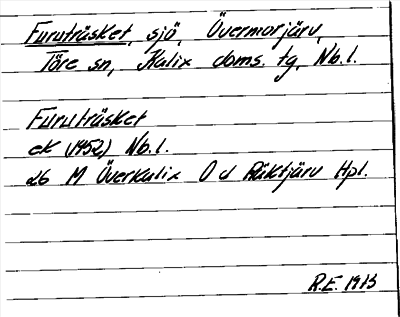 Furuträsket, sjö, Övermorjärv,
Töre sn, Kalix doms. tg, Nb. l.
Furuträsket
ek (1952) Nb. l.
26 M Överkalix O d Räktjärv Hpl.
R.E. 1973